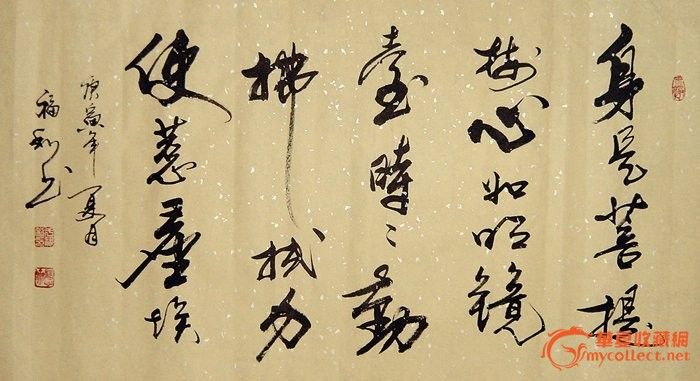 身是菩提
樹心如明鏡
臺時〻勤
拂拭勿
使惹塵埃
庚寅年夏月
福
華夏收藏網
mycollect.net